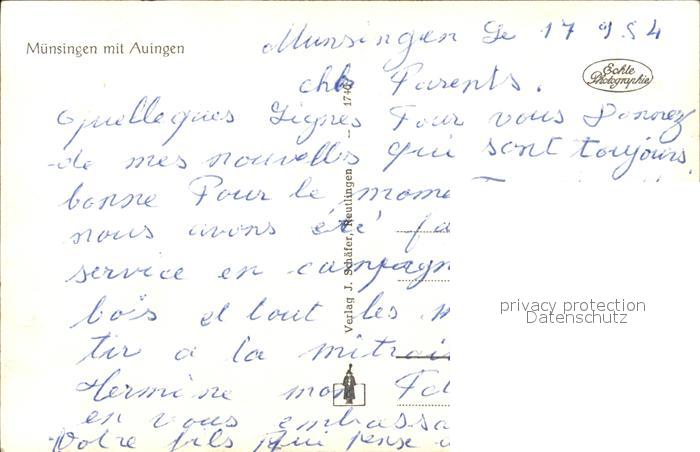 Münsingen mit Auingen
Munsingen Le 17 9 54
Echte Photographie
chers Parents.
quelleques Lignes Pour vous Donnez
de mes nouvelles qui sont toujours
bonne Pour le mome
nous avons été fa
service en campagn
bois et tout les m
tir a la mitrai
termine mon
en vous embrassa
Votre fils qui pense
Verlag J. Schäfer, Reutlingen
privacy protection
Datenschutz